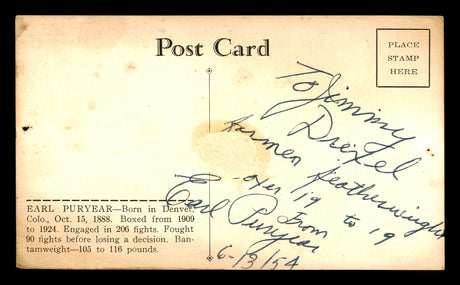 Post Card
PLACE
STAMP
HERE
To Jimmy
Drexel
former featherweight
over 19 to 19
From
Earl Puryear
6-13/54
EARL PURYEAR—Born in Denver,
Colo., Oct. 15, 1888. Boxed from 1909
to 1924. Engaged in 206 fights. Fought
90 fights before losing a decision. Ban-
tamweight—105 to 116 pounds.